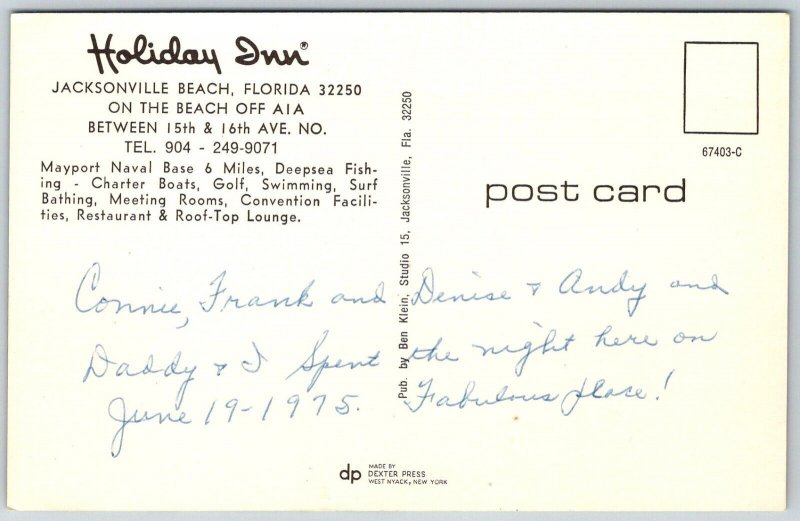 Holiday Inn®
JACKSONVILLE BEACH, FLORIDA 32250
ON THE BEACH OFF A1A
BETWEEN 15th & 16th AVE. NO.
TEL. 904 - 249-9071
Mayport Naval Base 6 Miles, Deepsea Fish-
ing - Charter Boats, Golf, Swimming, Surf
Bathing, Meeting Rooms, Convention Facili-
ties, Restaurant & Roof-Top Lounge.
Pub. by Ben Klein, Studio 15, Jacksonville, Fla. 32250
67403-C
post card
Connie, Frank and Denise & Andy and
Daddy & I Spent the night here on
June 19-1975. Fabulous place!
dp
MADE BY
DEXTER PRESS
WEST NYACK, NEW YORK